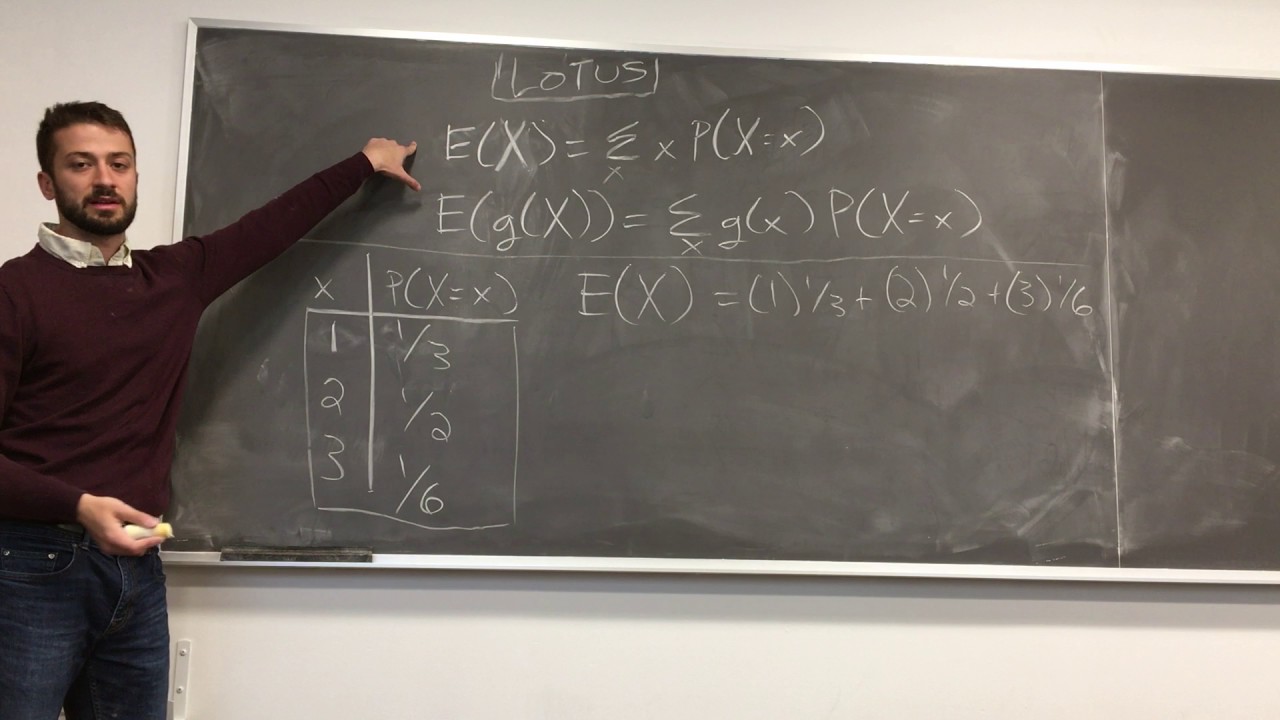 LOTUS
E(X) = Σ_x x P(X=x)
E(g(X)) = Σ_x g(x) P(X=x)
x P(X=x)
1 1/3
2 1/2
3 1/6
E(X) = (1) 1/3 + (2) 1/2 + (3) 1/6